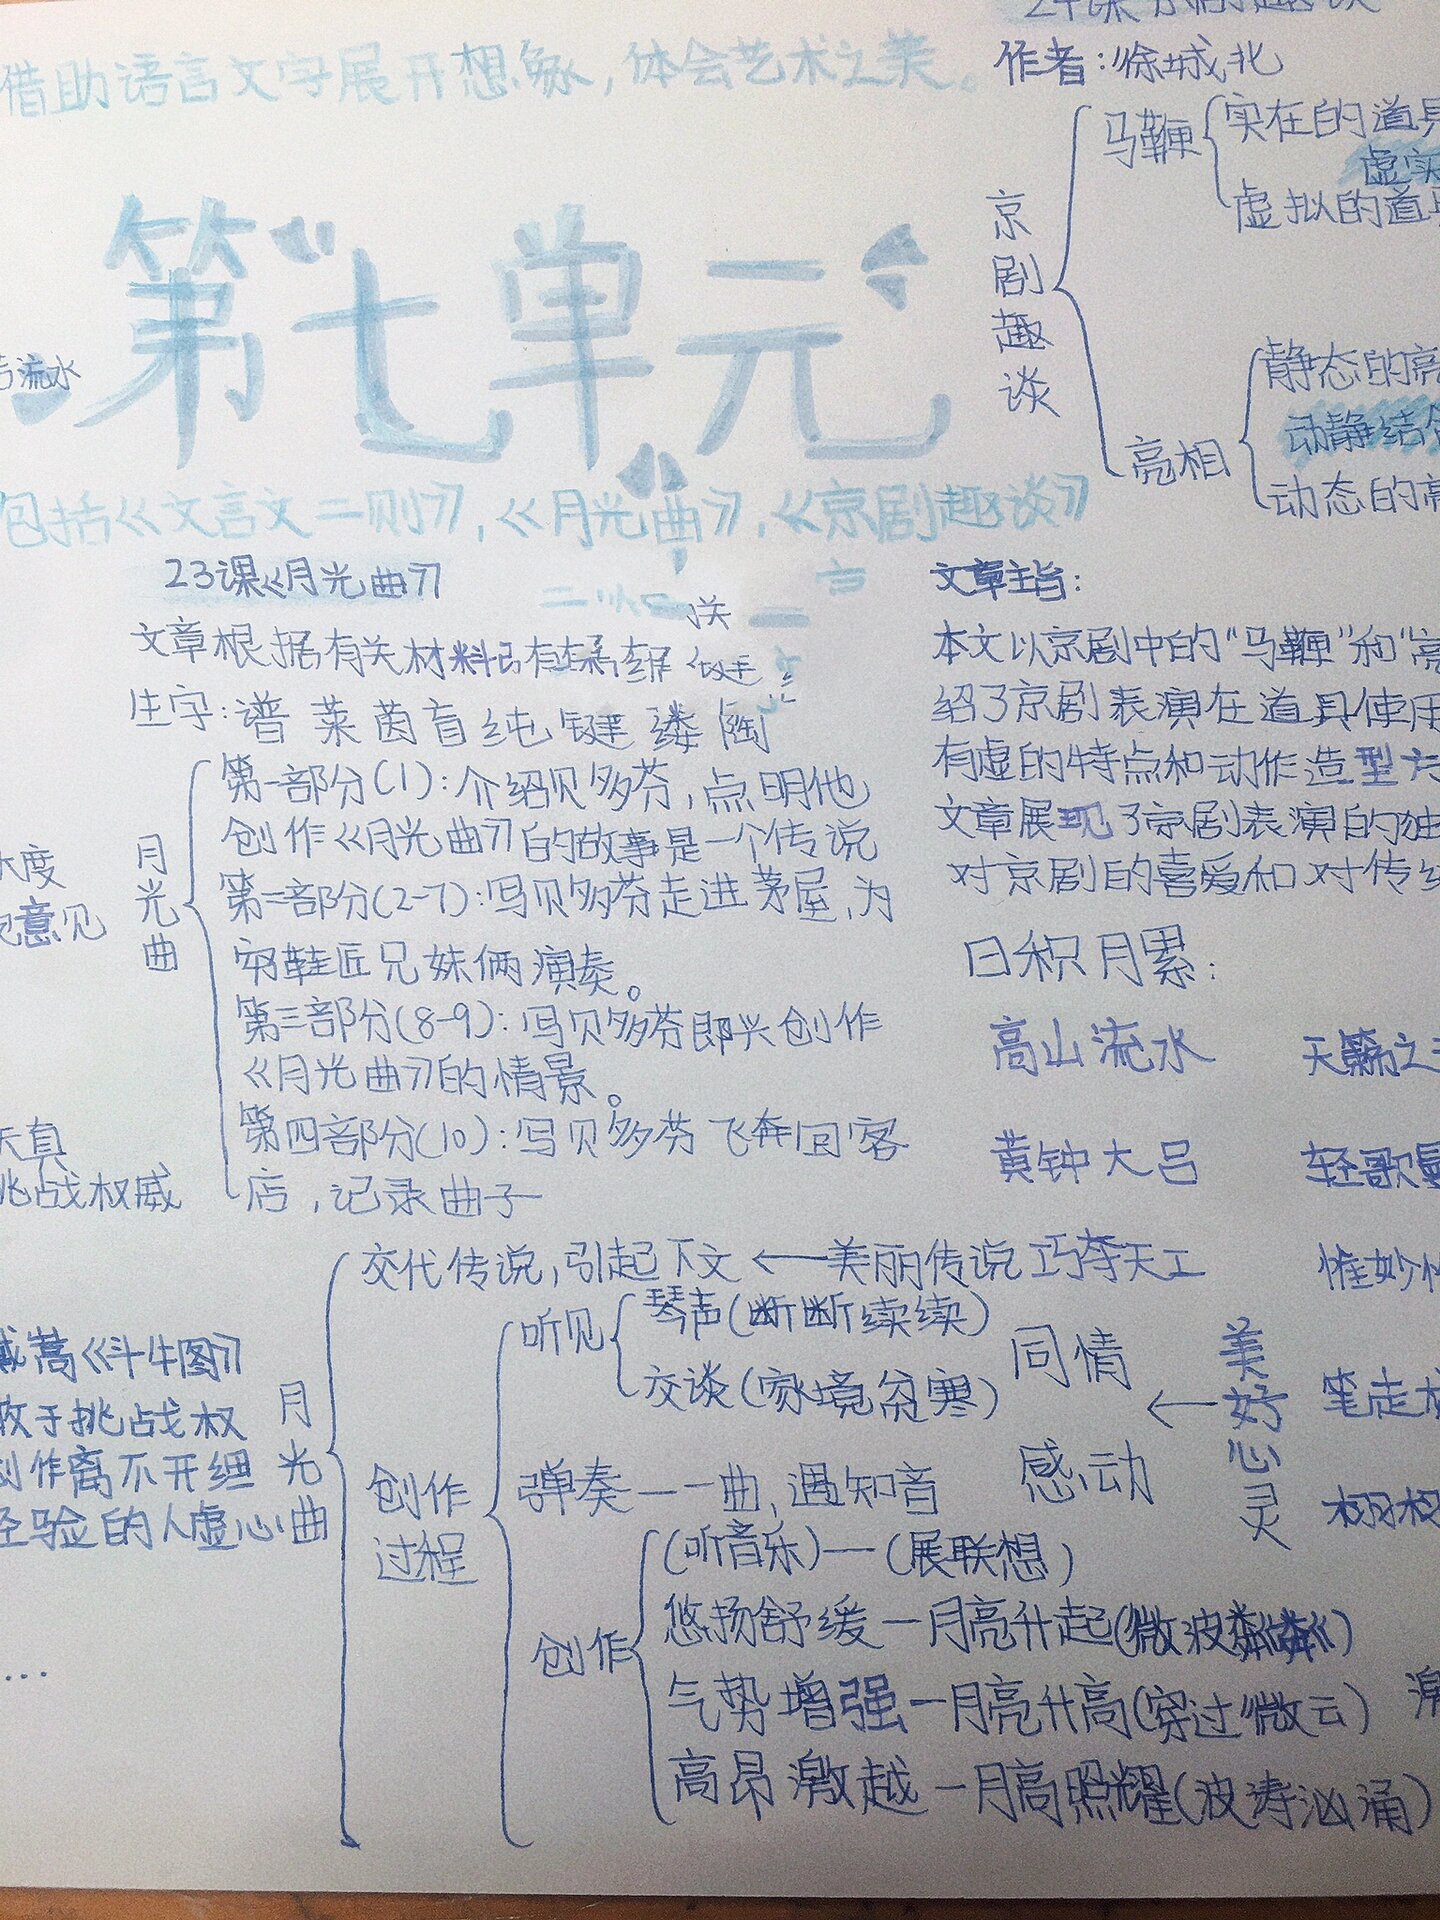 借助语言文字展开想象,体会艺术之美。
第七单元
包括《文言文二则》,《月光曲》,《京剧趣谈》
作者:徐城北
京剧趣谈
马鞭
实在的道具
虚实
虚拟的道具
亮相
静态的亮
动静结合
动态的亮
流水
23课《月光曲》
文章根据有关材料
生字:谱 莱 茵 盲 纯 键 缕 陶
月光曲
第一部分(1):介绍贝多芬,点明他
创作《月光曲》的故事是一个传说
第二部分(2-7):写贝多芬走进茅屋,为
穷鞋匠兄妹俩演奏。
第三部分(8-9):写贝多芬即兴创作
《月光曲》的情景。
第四部分(10):写贝多芬飞奔回客
店,记录曲子
文章主旨:
本文以京剧中的“马鞭”和“亮
绍了京剧表演在道具使用
有虚的特点和动作造型方
文章展现了京剧表演的独
对京剧的喜爱和对传统
日积月累:
高山流水 天籁之
黄钟大吕 轻歌曼
巧夺天工 惟妙
笔走
栩栩
度
意见
天真
挑战权威
戴嵩《斗牛图》
敢于挑战权
创作离不开细
经验的人虚心
...
月光曲
交代传说,引起下文←美丽传说
创作过程
听见
琴声(断断续续)
交谈(家境贫寒)
同情
弹奏——一曲,遇知音
感动
←美好心灵
创作
(听音乐)—(展联想)
悠扬舒缓—月亮升起(微波粼粼)
气势增强—月亮升高(穿过微云)
高昂激越—月高照耀(波涛汹涌)